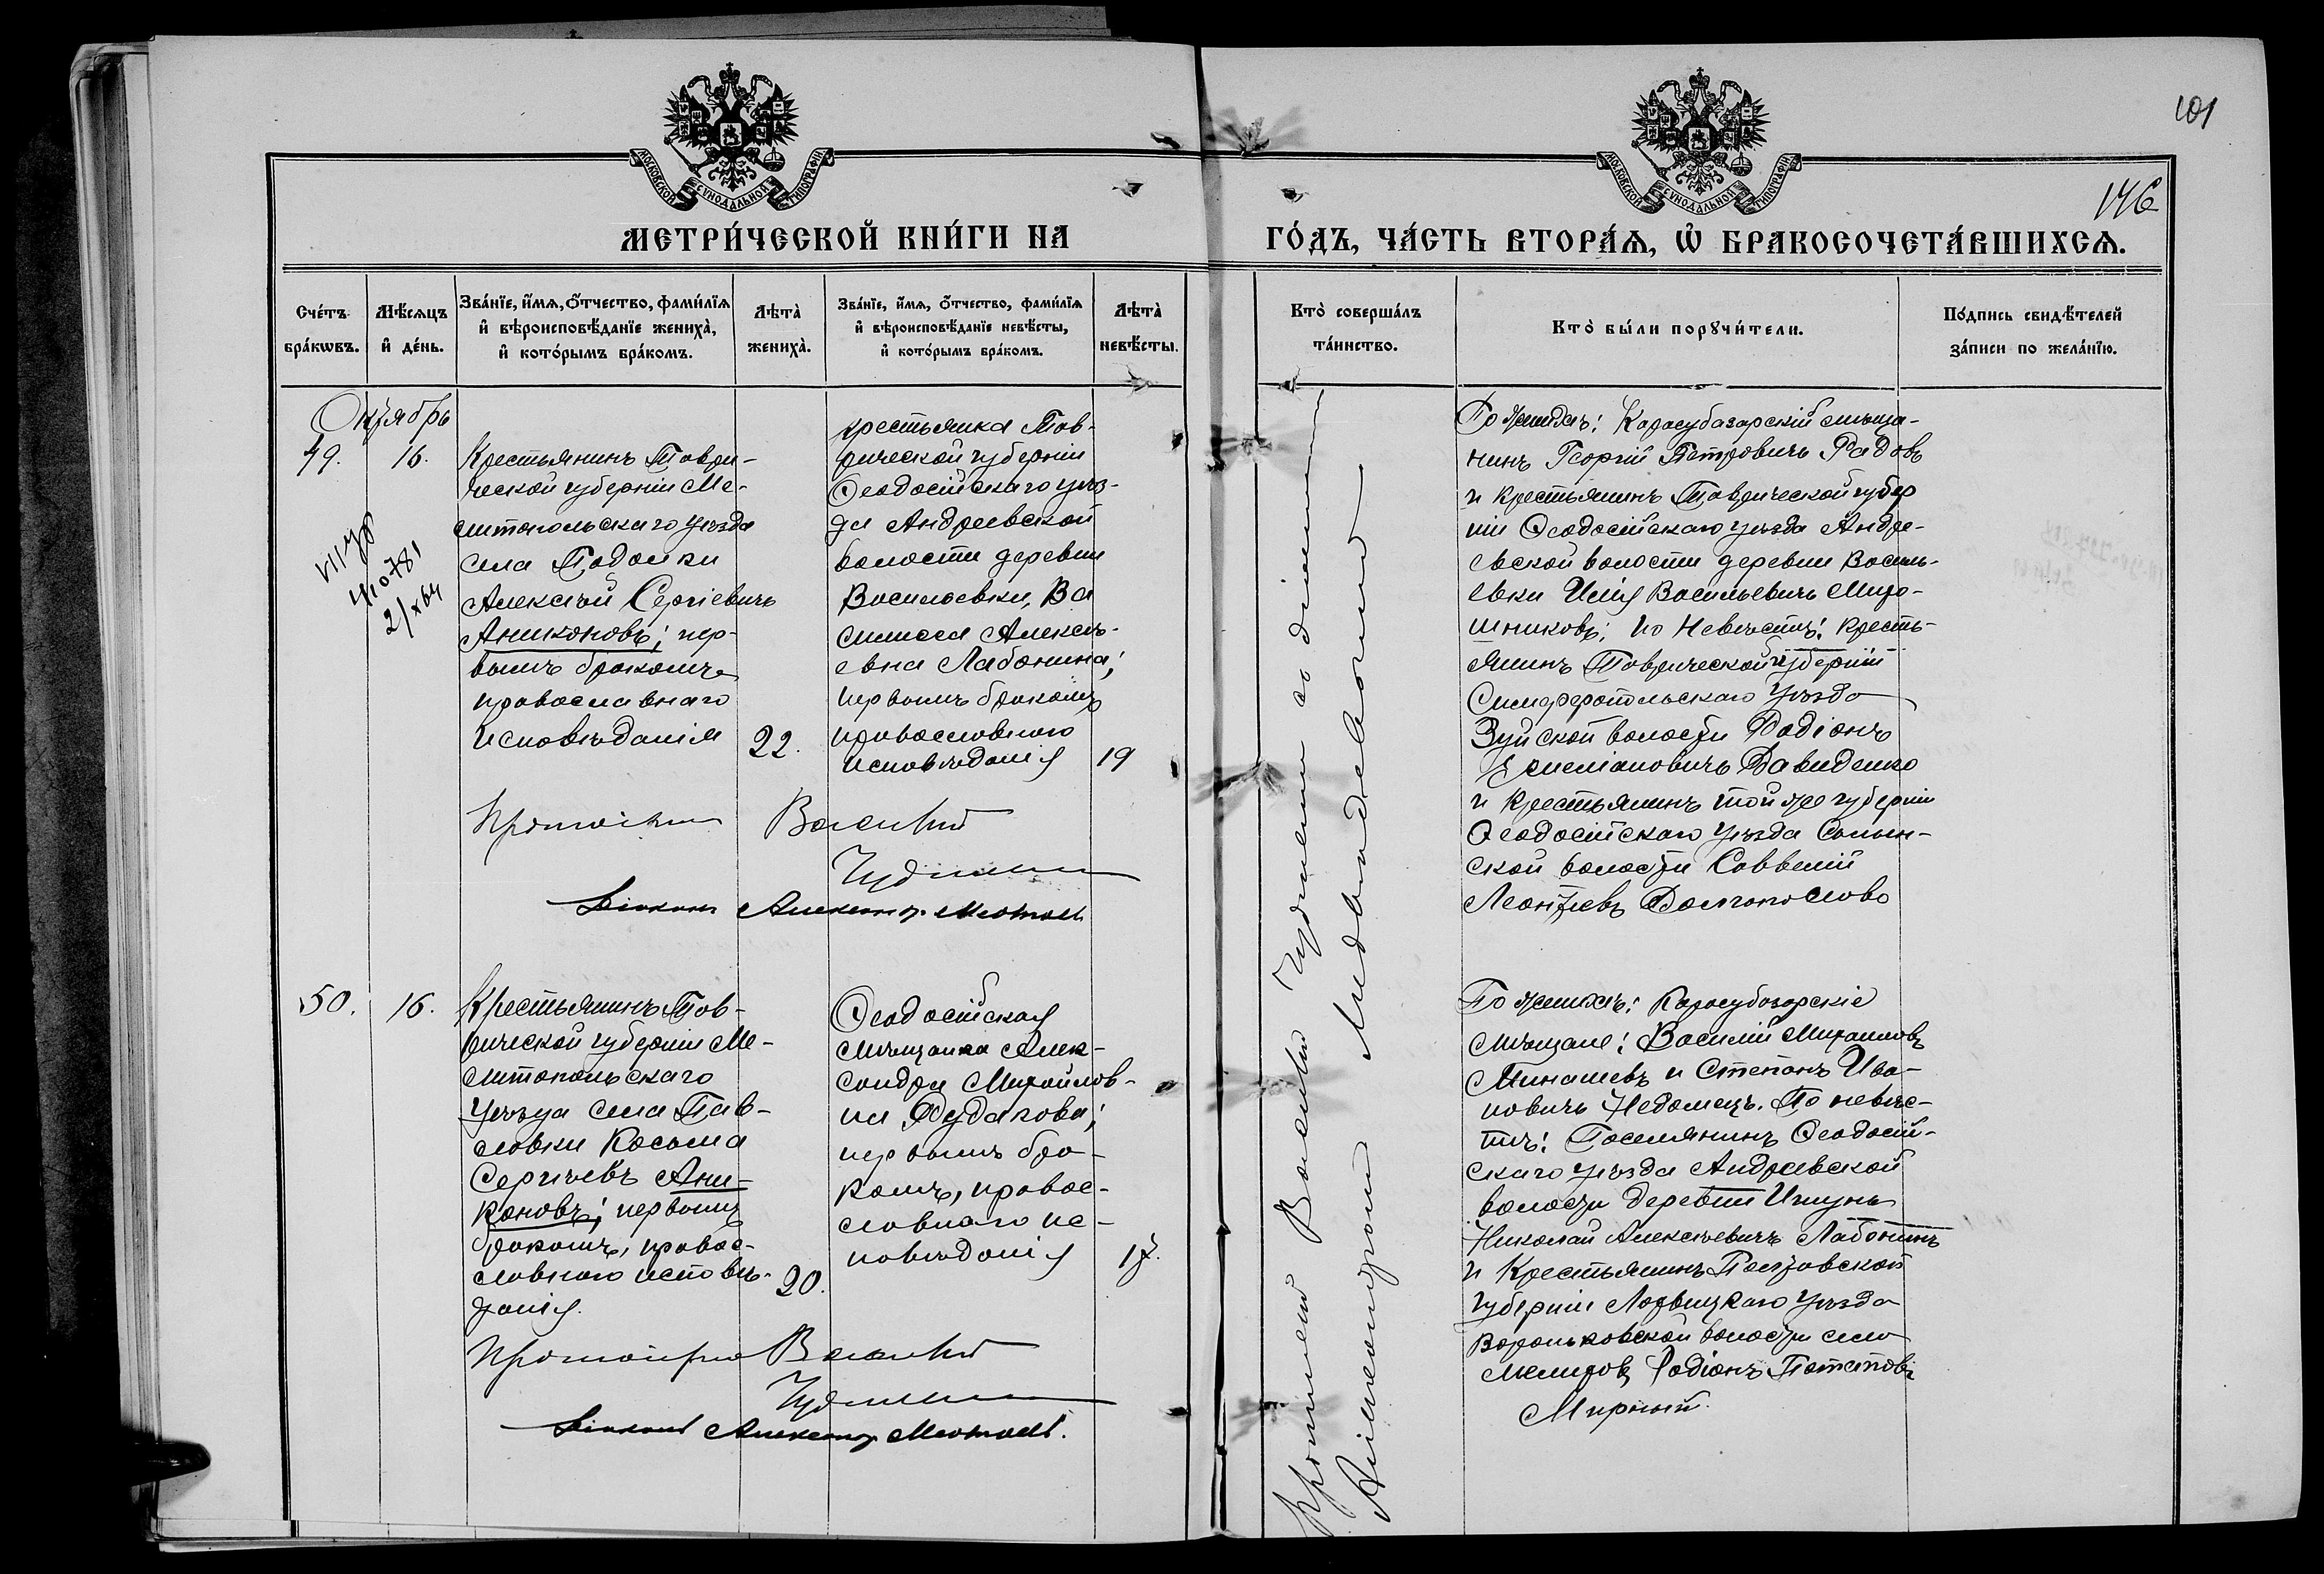 101
146
МОСКОВСКОЙ СѴНОДАЛЬНОЙ ТИПОГРАФІИ
МОСКОВСКОЙ СѴНОДАЛЬНОЙ ТИПОГРАФІИ
МЕТРИ́ЧЕСКОЙ КНИ́ГИ НА
ГО́ДЪ, ЧА́СТЬ ВТОРА́Ѧ, Ѽ БРАКОСОЧЕТА́ВШИХСѦ.
Сче́тъ бра́кѡвъ.
Мѣ́сѧцъ и҆ де́нь.
Зва́нїе, и҆́мѧ, ѻ҆́тчество, фами́лїѧ
и҆ вѣроисповѣ́данїе жениха̀,
и҆ кото́рымъ бра́комъ.
Лѣта̀ жениха̀.
Зва́нїе, и҆́мѧ, ѻ҆́тчество, фами́лїѧ
и҆ вѣроисповѣ́данїе невѣ́сты,
и҆ кото́рымъ бра́комъ.
Лѣта̀ невѣ́сты.
Кто̀ соверша́лъ та́инство.
Кто̀ бы́ли порꙋчи́тели.
По́дпись свидѣ́телей
за́писи по жела́нїю.
Октябрь
49.
16.
Крестьянинъ Таври-
ческой губерніи Ме-
литопольскаго уѣзда
села Подойки
Алексѣй Сергіевичъ
Аниконовъ; пер-
вымъ бракомъ
православнаго
исповѣданія
22.
крестьянка Тав-
рической губерніи
Ѳеодосійскаго уѣз-
да Андреевской
волости деревни
Васильевки, Ва
силиса Алексѣ-
евна Лабонина;
первымъ бракомъ
православнаго
исповѣданія
19
Протоіерей Василій
Чудновскій
Діаконъ Александр
По женихѣ: Карасубазарскій мѣща-
нинъ Георгій Петровичъ Радовъ
и крестьянинъ Таврической губер
ніи Ѳеодосійскаго уѣзда Андре-
евской волости деревни Василь-
евки Илія Васильевичъ Миро-
шниковъ; по невѣстѣ: кресть-
янинъ Таврической губерніи
Симферопольскаго уѣзда
Зуйской волости Родіонъ
Емеліановичъ Давиденко
и крестьянинъ той же губерніи
Ѳеодосійскаго уѣзда
ской волости Савватій
Леонтіевъ
50.
16.
Крестьянинъ Тав-
рической губерніи Ме-
литопольскаго
уѣзда села Пав-
ловки Косьма
Сергѣевъ Ани-
коновъ; первымъ
бракомъ, правос-
лавнаго исповѣ-
данія.
20.
Ѳеодосійская
мѣщанка Алек-
сандра Михайлов-
на Дудакова;
первымъ бра-
комъ, правос-
лавнаго ис-
повѣданія
17.
Протоіерей Василій
Чудновскій
Діаконъ Александр
По женихѣ: Карасубазарскіе
мѣщане: Василій Михаиловъ
Минашевъ и Степанъ Ива-
новичъ Недомецъ. По невѣс-
тѣ: Поселянинъ Ѳеодосій-
скаго уѣзда Андреевской
волости деревни Ичунь
Николай Алексѣевичъ Лабонинъ
и Крестьянинъ Полтавской
губерніи Лохвицкаго уѣзда
Вороньковской волости село
Родіонъ Потаповъ
Мирный.
Протоіерей Василій Чудновскій съ діакономъ
Александромъ